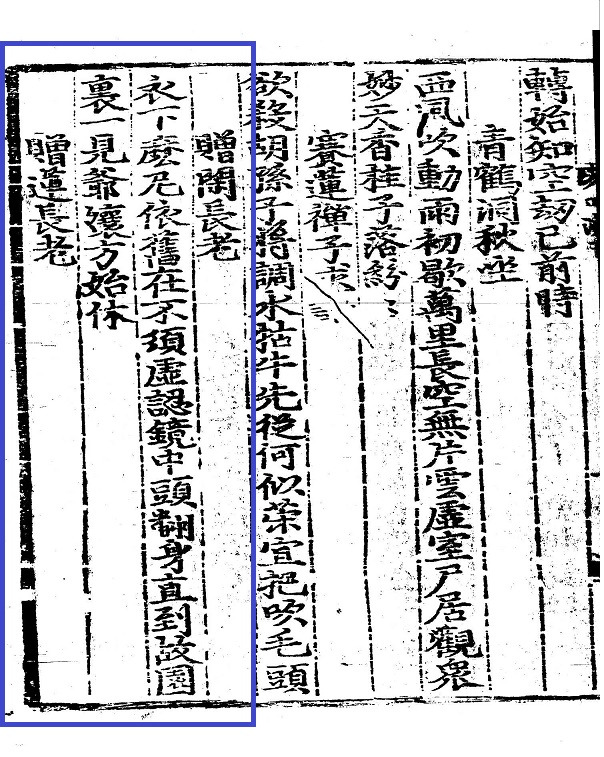 轉始知空劫已前時
青鶴洞秋坐
西風吹動雨初歇萬里長空無片雲虛室尸居觀衆
妙天香桂子落紛〻
賽蓮禪子
欲殺胡孫子將調水牯牛先從何似榮宜把吹毛頭
贈閑長老
衣下麽尼依舊在不須虛認鏡中頭翻身直到故園
裏一見爺孃方始休
贈蓮長老